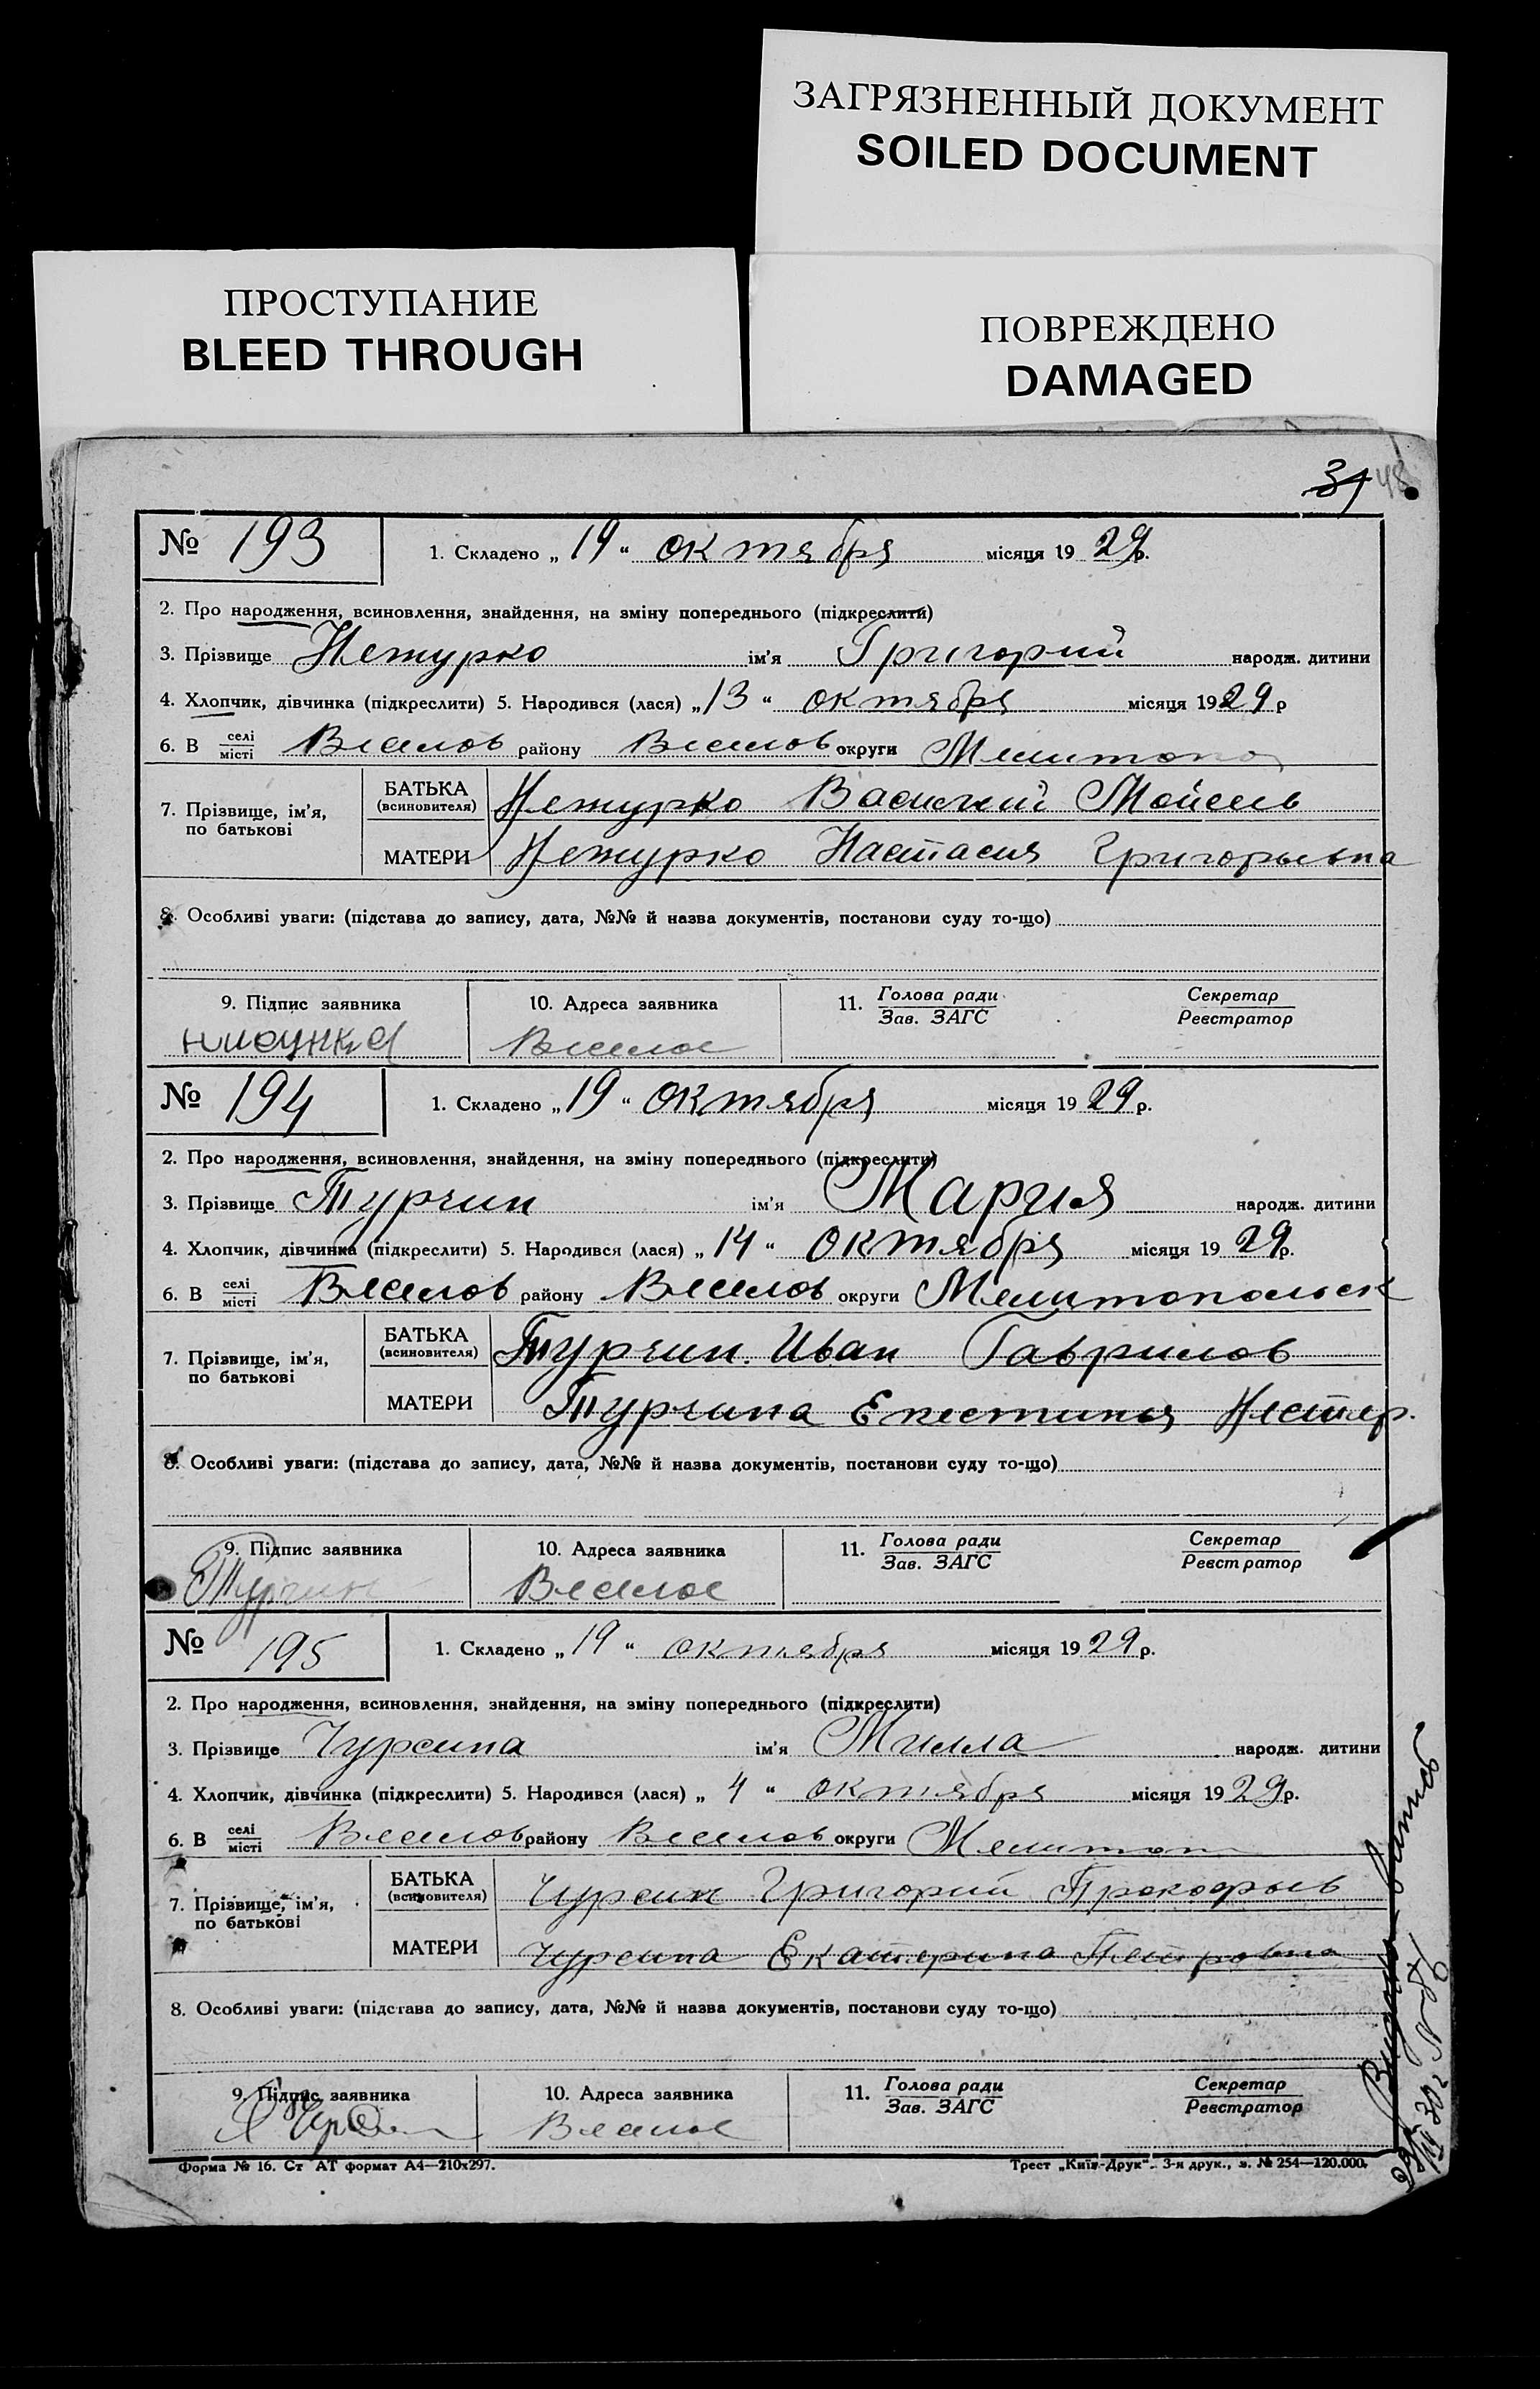 ЗАГРЯЗНЕННЫЙ ДОКУМЕНТ
SOILED DOCUMENT
ПРОСТУПАНИЕ
BLEED THROUGH
ПОВРЕЖДЕНО
DAMAGED
31 48
№ 193 1. Складено „ 19 “ октября місяця 19 29 р.
2. Про народження, всиновлення, знайдення, на зміну попереднього (підкреслити)
3. Прізвище Нежурко ім'я Григорий народж. дитини
4. Хлопчик, дівчинка (підкреслити) 5. Народився (лася) „ 13 “ октября місяця 19 29 р
6. В селі/місті Веселов району Веселов округи Мелитопо
7. Прізвище, ім'я, по батькові
БАТЬКА (всиновителя) Нежурко Василий Мойсеев
МАТЕРИ Нежурко Настасия Григорьевна
8. Особливі уваги: (підстава до запису, дата, №№ й назва документів, постанови суду то-що)
9. Підпис заявника 10. Адреса заявника 11. Голова ради/Зав. ЗАГС Секретар/Реєстратор
Веселое
№ 194 1. Складено „ 19 “ октября місяця 19 29 р.
2. Про народження, всиновлення, знайдення, на зміну попереднього (підкреслити)
3. Прізвище Турчин ім'я Мария народж. дитини
4. Хлопчик, дівчинка (підкреслити) 5. Народився (лася) „ 14 “ октября місяця 19 29 р.
6. В селі/місті Веселов району Веселов округи Мелитопольск
7. Прізвище, ім'я, по батькові
БАТЬКА (всиновителя) Турчин Иван Гаврилов
МАТЕРИ Турчина Епестиния Нестер.
8. Особливі уваги: (підстава до запису, дата, №№ й назва документів, постанови суду то-що)
9. Підпис заявника 10. Адреса заявника 11. Голова ради/Зав. ЗАГС Секретар/Реєстратор
Турчин Веселое
№ 195 1. Складено „ 19 “ октября місяця 19 29 р.
2. Про народження, всиновлення, знайдення, на зміну попереднього (підкреслити)
3. Прізвище Чурсина ім'я Милла народж. дитини
4. Хлопчик, дівчинка (підкреслити) 5. Народився (лася) „ 4 “ октября місяця 19 29 р.
6. В селі/місті Веселов району Веселов округи Мелитоп
7. Прізвище, ім'я, по батькові
БАТЬКА (всиновителя) Чурсин Григорий Прокофьев
МАТЕРИ Чурсина Екатерина Петровна
8. Особливі уваги: (підстава до запису, дата, №№ й назва документів, постанови суду то-що)
9. Підпис заявника 10. Адреса заявника 11. Голова ради/Зав. ЗАГС Секретар/Реєстратор
Веселое
Форма № 16. Ст АТ формат А4—210х297. Трест „Київ-Друк“. 3-я друк., з. № 254—120.000.